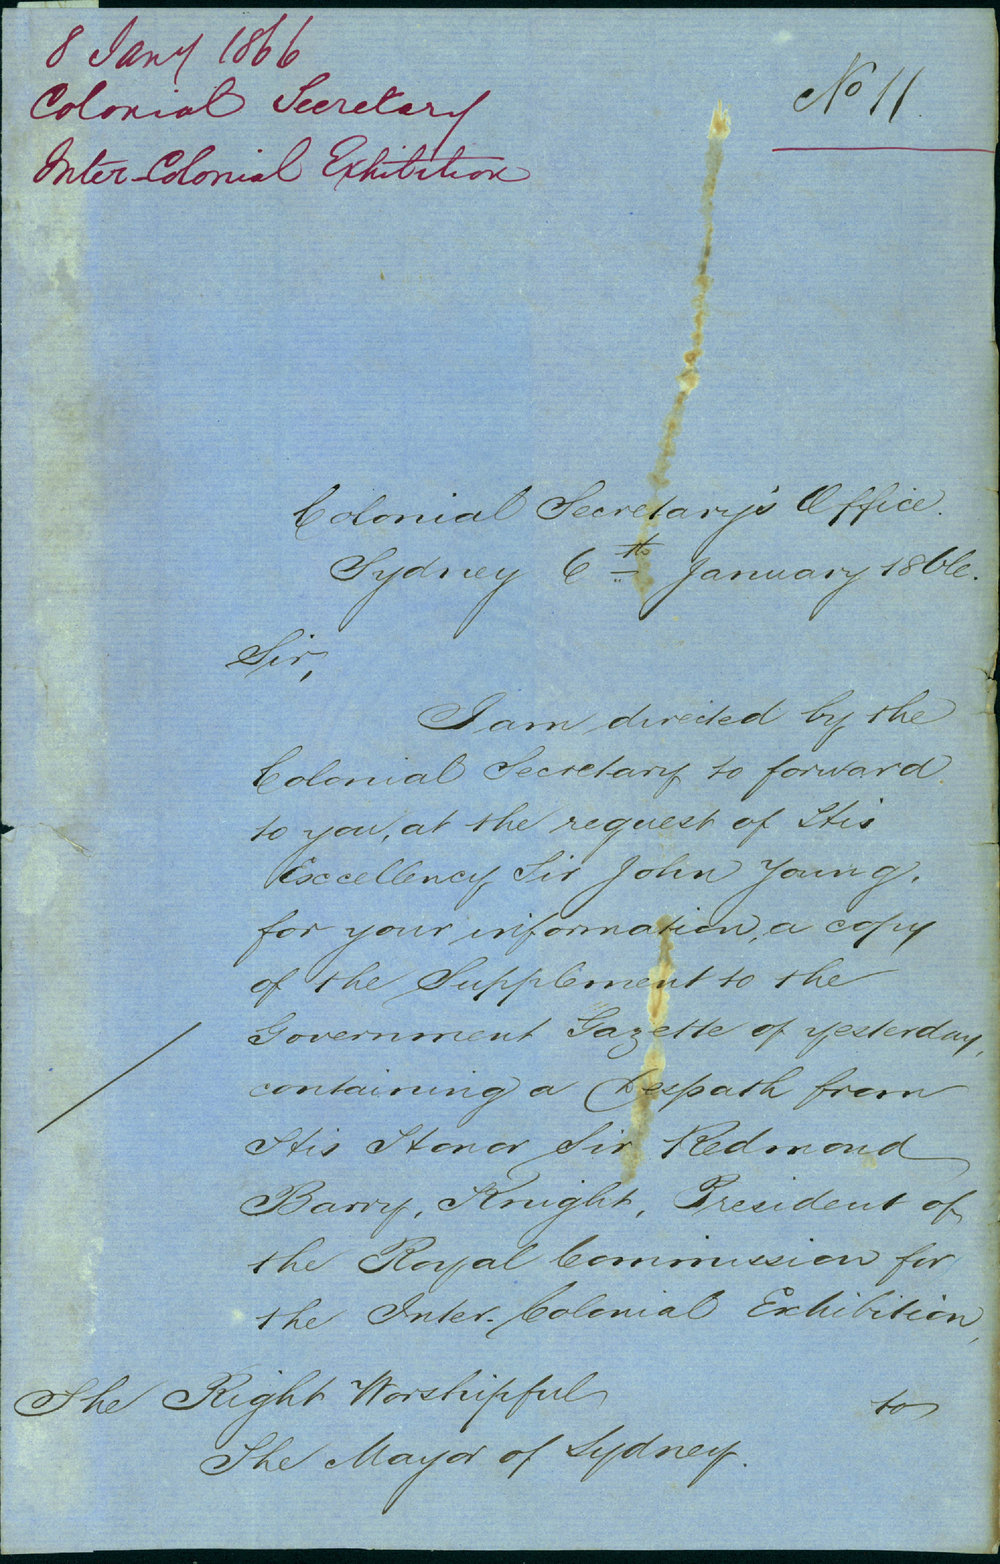 8 Jany 1866
Colonial Secretary
Inter-Colonial Exhibition
No 11.
Colonial Secretary's Office.
Sydney 6th January 1866.
Sir,
I am directed by the
Colonial Secretary to forward
to you, at the request of His
Excellency Sir John Young,
for your information, a copy
of the Supplement to the
Government Gazette of yesterday,
containing a Despath from
His Honor Sir Redmond
Barry, Knight, President of
the Royal Commission for
the Inter-Colonial Exhibition,
to
The Right Worshipful
The Mayor of Sydney.